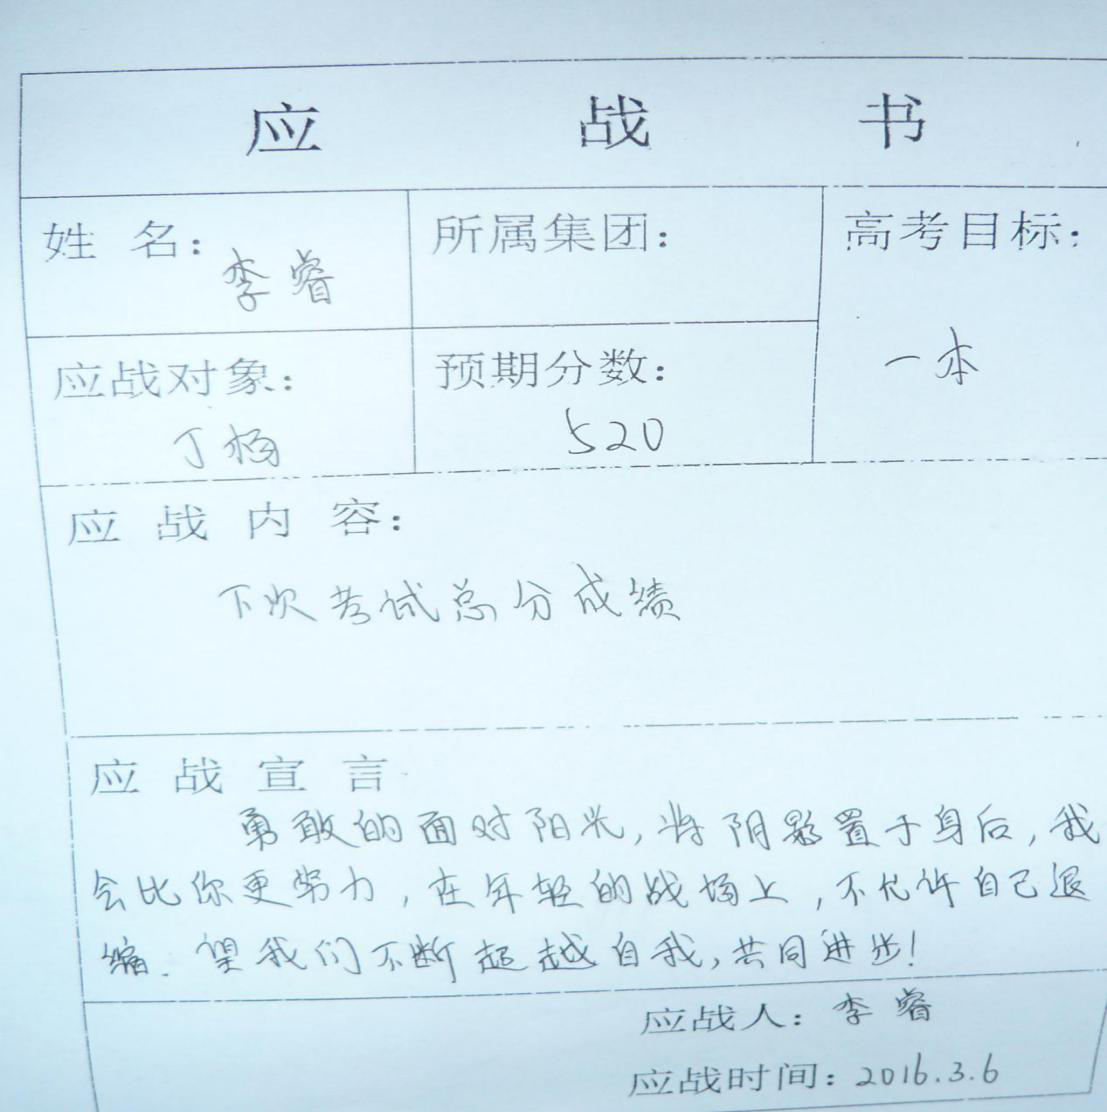 应战书
姓 名： 李睿
所属集团：
高考目标：
一本
应战对象：
丁杨
预期分数：
520
应 战 内 容：
下次考试总分成绩
应 战 宣 言
勇敢的面对阳光，将阴影置于身后，我
会比你更努力，在年轻的战场上，不允许自己退
缩．望我们不断超越自我，共同进步！
应战人：李睿
应战时间：2016.3.6